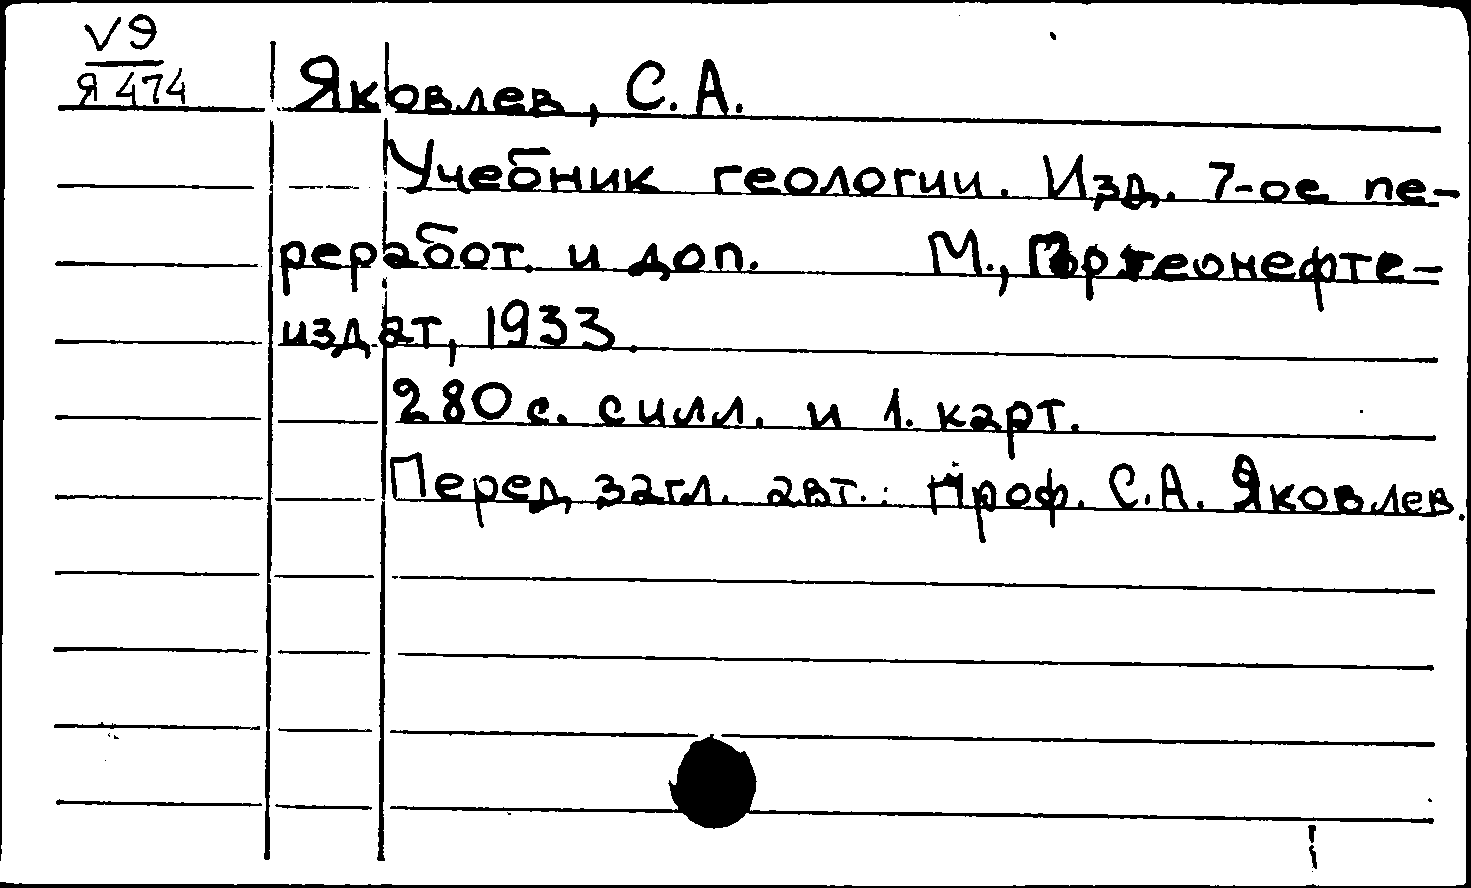 V9
Я 474
Яковлев, С. А.
Учебник геологии. Изд. 7-ое пе-
реработ. и доп. М., Горгеонефте-
издат, 1933.
280 с. с илл. и 1. карт.
Перед загл. авт.: Проф. С. А. Яковлев.